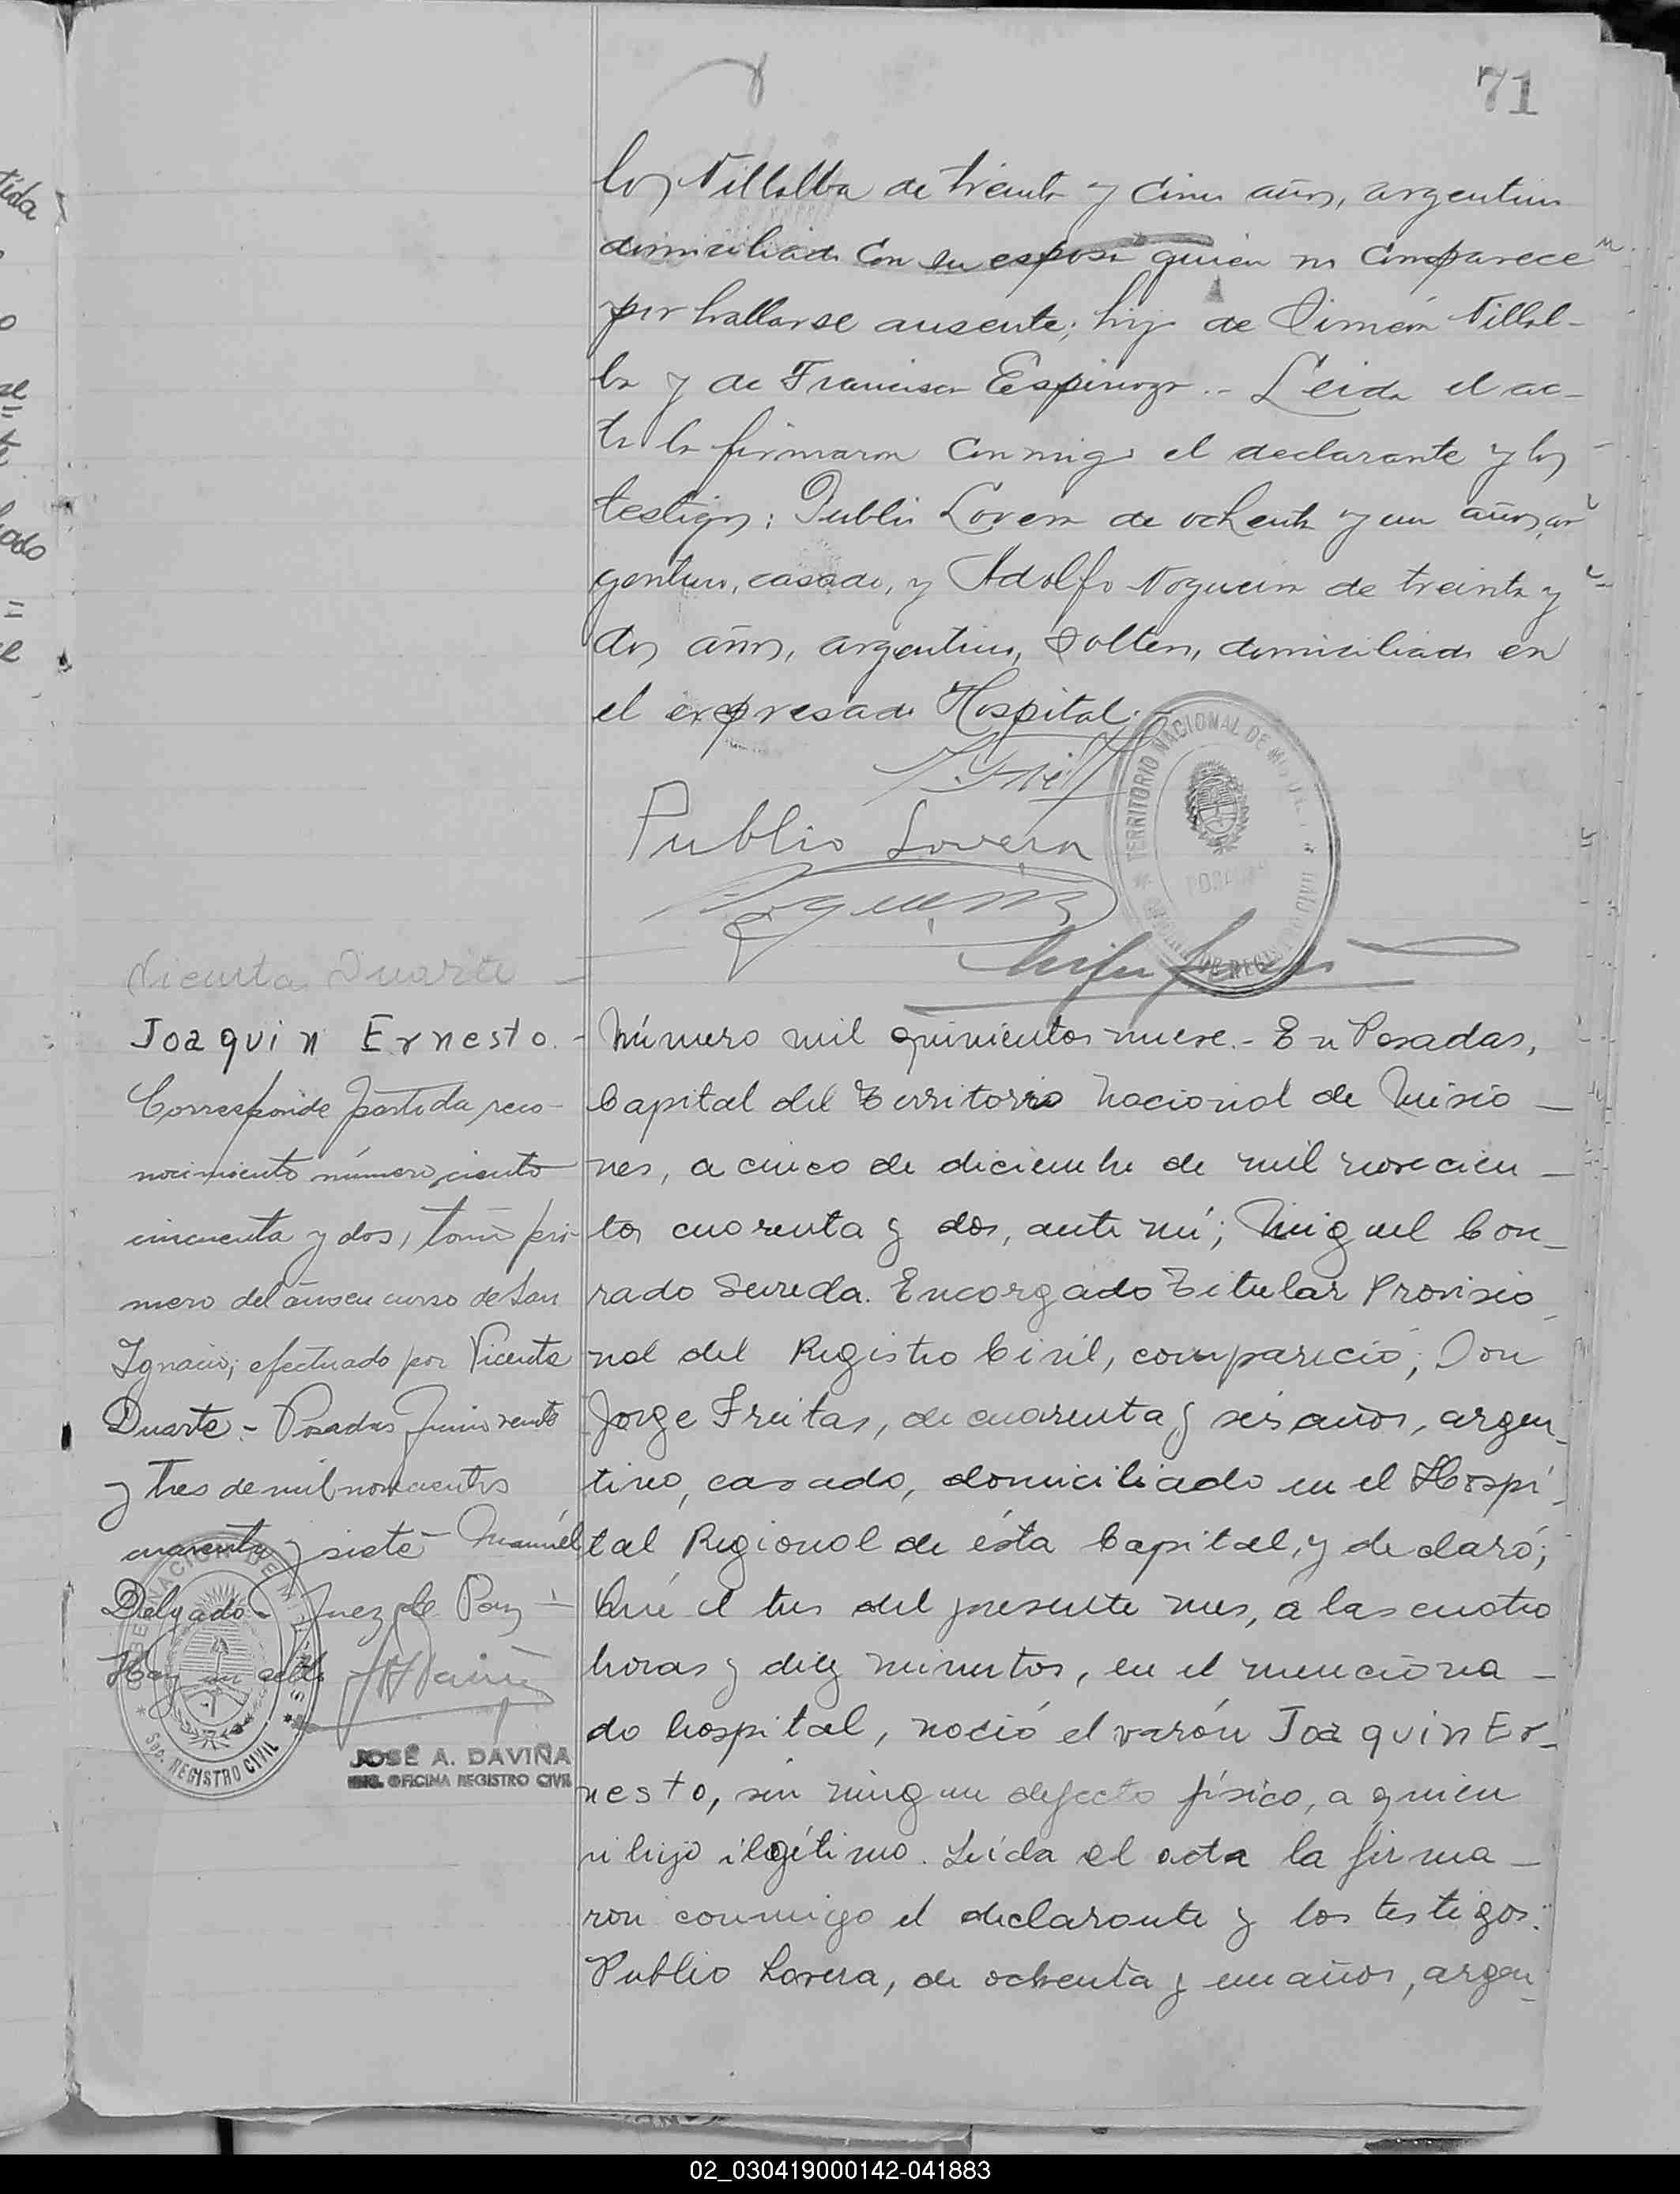 71
los Villalba de treinta y cinco años, argentino
domiciliado con su esposa quien no comparece
por hallarse ausente; hijo de Simeón Villal-
ba y de Francisca Espinoza.- Leida el ac-
ta la firmaron conmigo el declarante y los
testigos: Publio Lovera de ochenta y un años, ar
gentino, casado, y Adolfo Nogueira de treinta y
dos años, argentino, soltero, domiciliado en
el expresado Hospital.-
TERRITORIO NACIONAL DE MISIONES
POSADAS
Publio Lovera
Vicenta Duarte
Joaquin Ernesto.-
Corresponde partida reco-
nocimiento número ciento
cincuenta y dos, tomo pri-
mero del año en curso de San
Ignacio; efectuado por Vicenta
Duarte.- Posadas Junio veinte
y tres de mil novecientos
cuarenta y siete- Manuel
Delgado- Juez de Paz-
Hay un sello
GOBERNACION DE MISIONES
Sec. REGISTRO CIVIL
JOSÉ A. DAVIÑA
ENC. OFICINA REGISTRO CIVIL
Número mil quinientos nueve.- En Posadas,
Capital del Territorio Nacional de Misio-
nes, a cinco de diciembre de mil novecien-
tos cuarenta y dos, ante mí; Miguel Con-
rado Sereda. Encargado Titular Provisio
nal del Registro Civil, compareció; Don
Jorge Freitas, de cuarenta y seis años, argen-
tino, casado, domiciliado en el Hospi-
tal Regional de ésta Capital, y declaró;
Qué el tres del presente mes, a las cuatro
horas y diez minutos, en el menciona-
do hospital, nació el varón Joaquin Er-
nesto, sin ningun defecto físico, a quien
hijo ilegítimo. Leída el acta la firma-
ron conmigo el declarante y los testigos:
Publio Lovera, de ochenta y un años, argen-
02_030419000142-041883